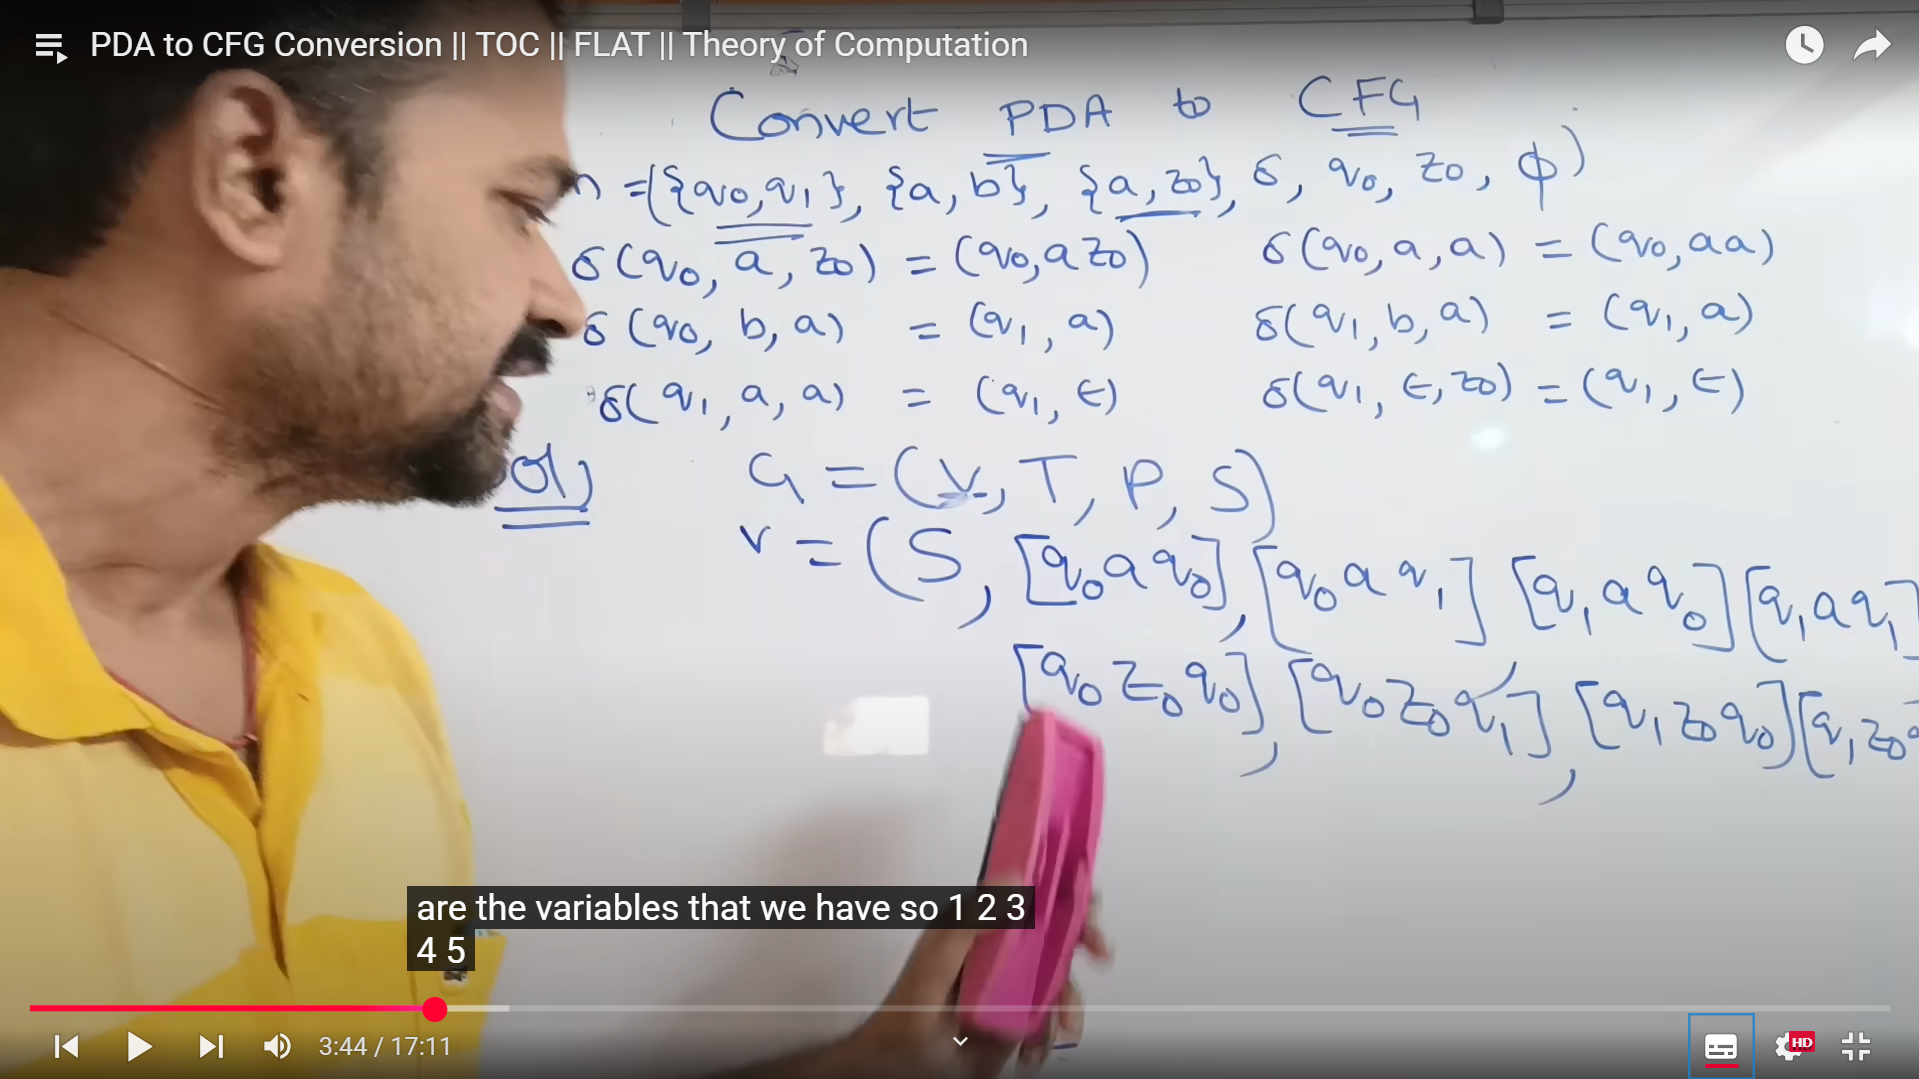 PDA to CFG Conversion || TOC || FLAT || Theory of Computation
Convert PDA to CFG
= ({q0,q1}, {a,b}, {a,z0}, δ, q0, z0, ϕ)
δ(q0, a, z0) = (q0,az0) δ(q0,a,a) = (q0,aa)
δ(q0, b, a) = (q1, a) δ(q1, b, a) = (q1, a)
δ(q1, a, a) = (q1, ϵ) δ(q1, ϵ, z0) = (q1, ϵ)
G = (V, T, P, S)
V = (S, [q0 a q0], [q0 a q1] [q1 a q0] [q1 a q1
[q0 z0 q0], [q0 z0 q1], [q1 z0 q0] [q1 z0
are the variables that we have so 1 2 3
4 5
3:44 / 17:11
HD